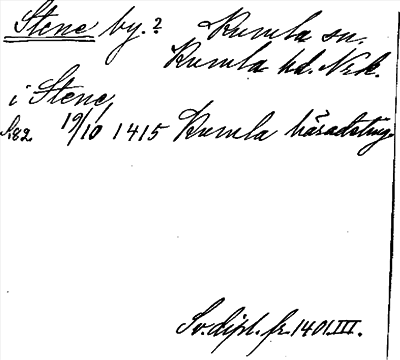 Stene by.? Kumla sn.
Kumla hd. Nrk.
i Stene,
s. 182. 19/10 1415 Kumla häradsting
Sv. dipl. fr. 1401. III.